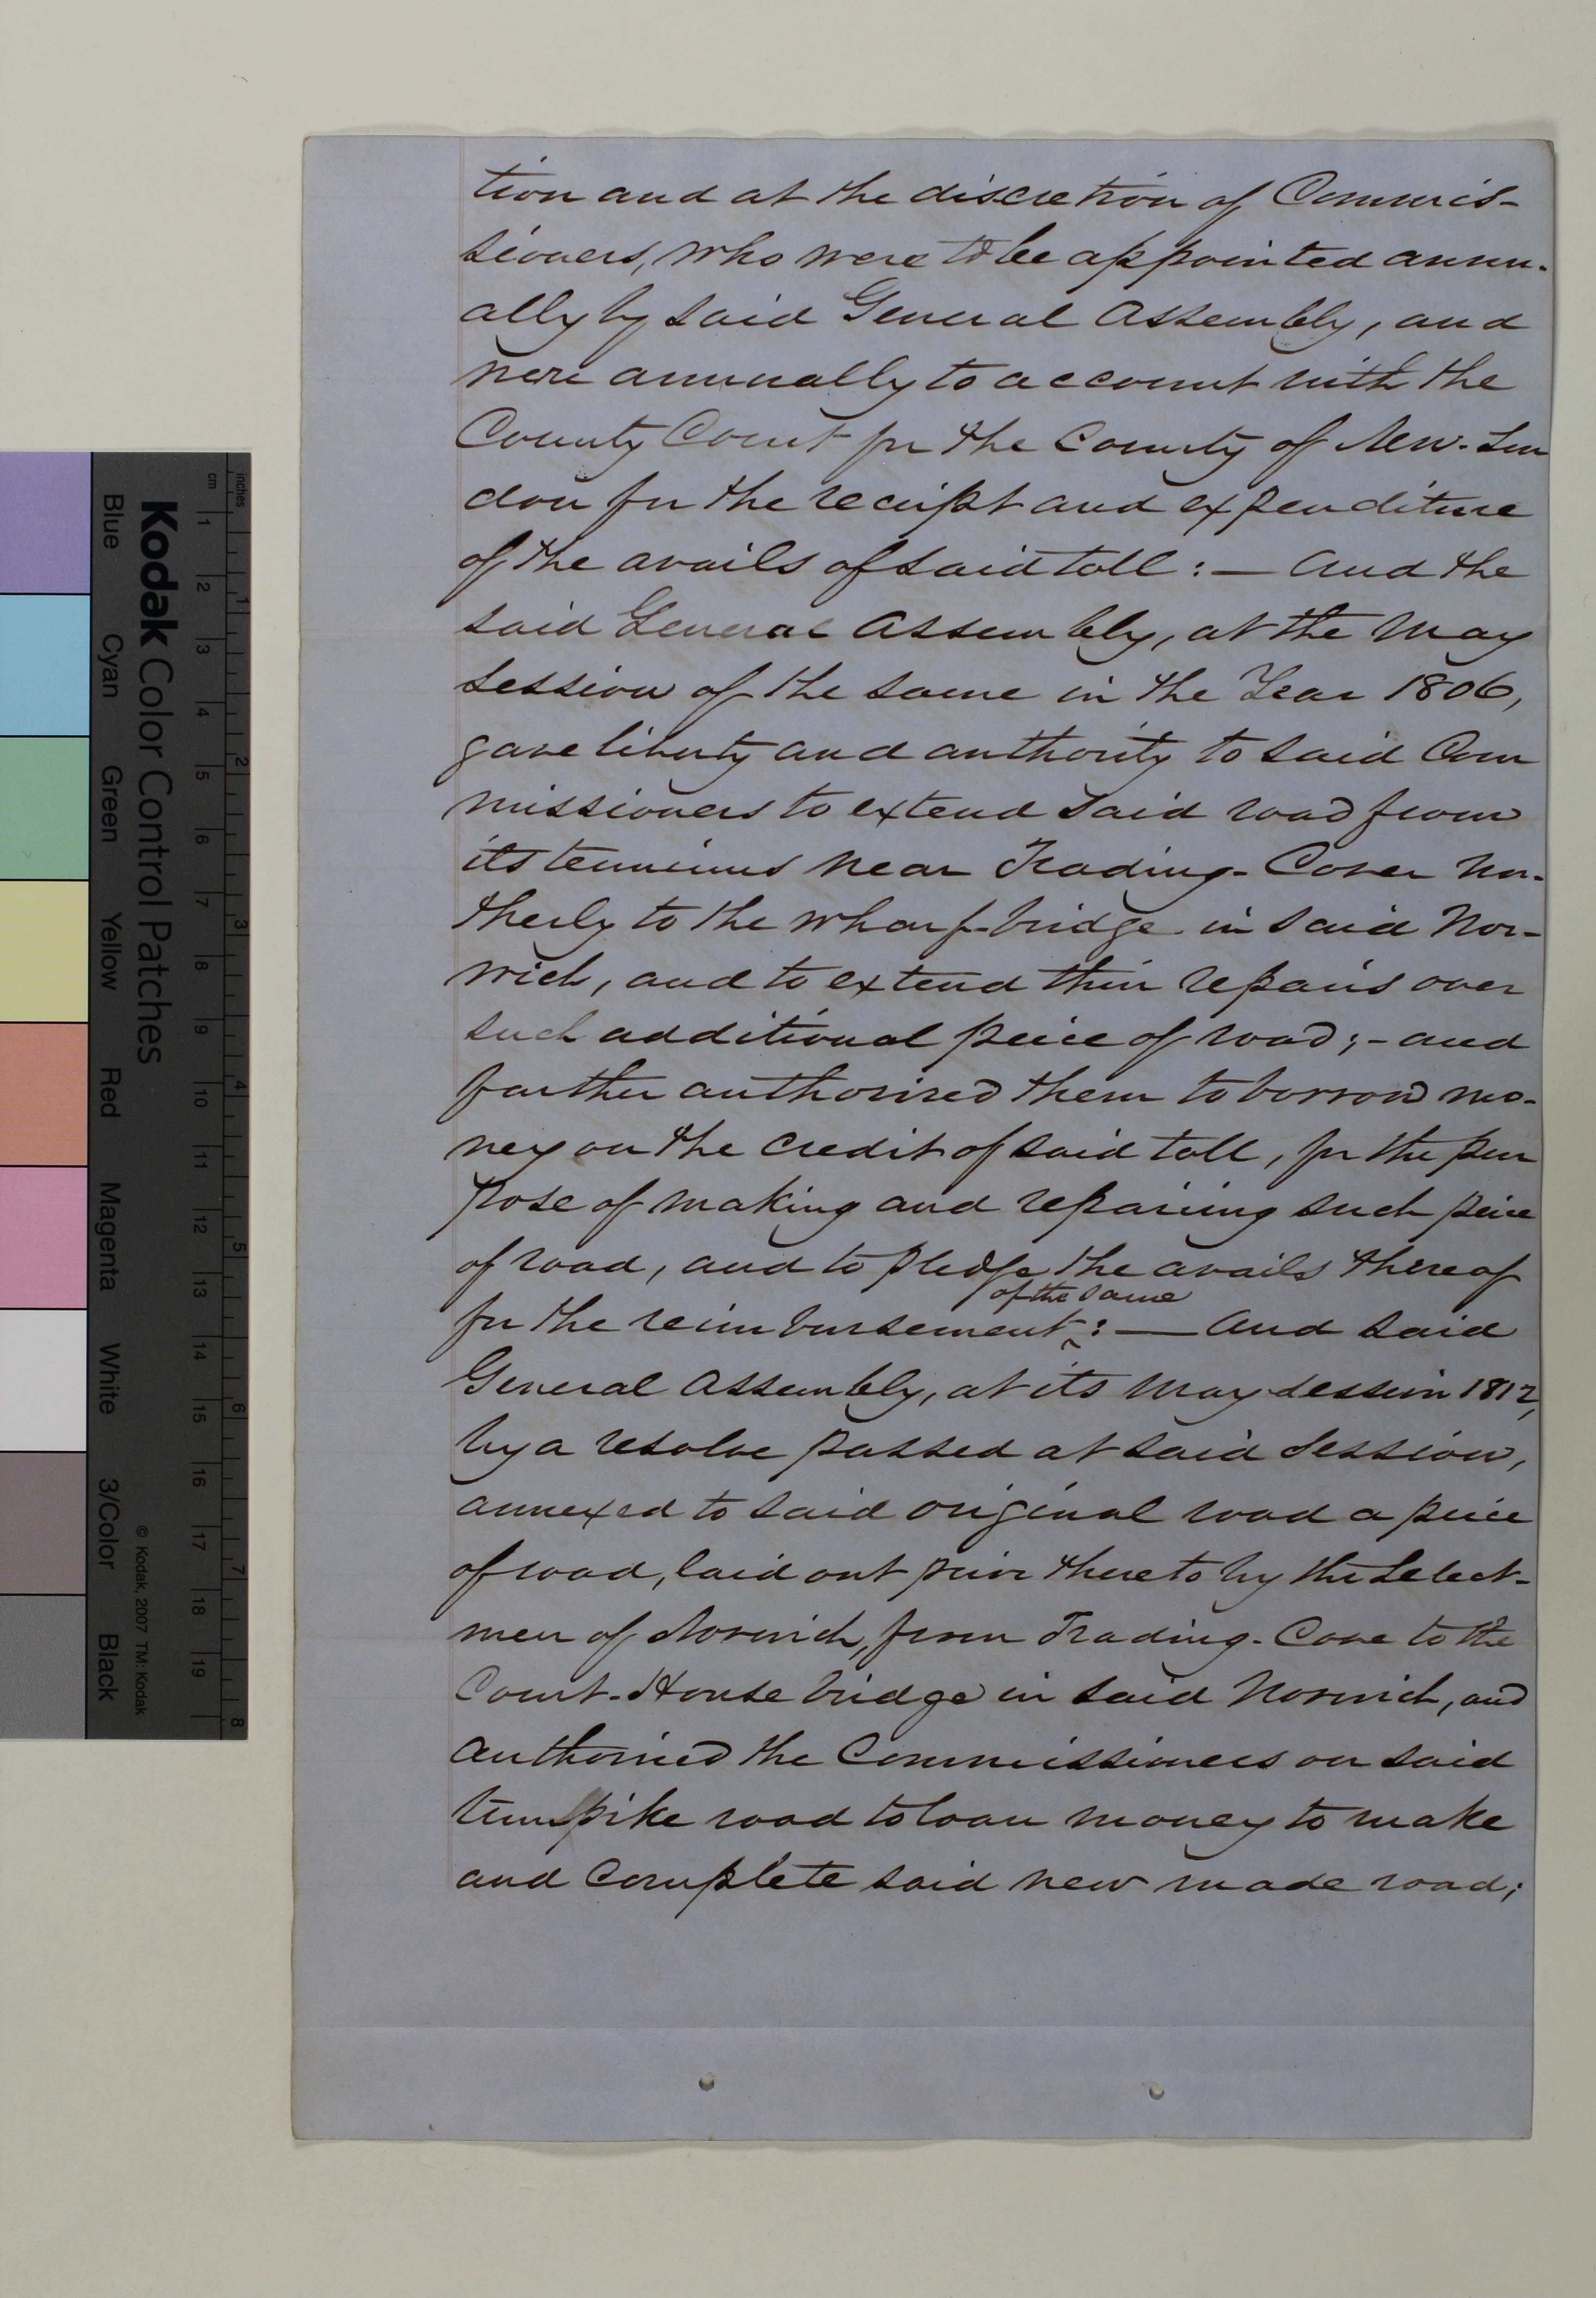 tion and at the discretion of Commis-
sioners, who were to be appointed annu-
ally by said General Assembly, and
were annually to account with the
County Court for the County of New-Lon
don for the receipt and expenditure
of the avails of said toll :— And the
said General Assembly, at the May
session of the same in the Year 1806,
gave liberty and authority to said Com
missioners to extend said road from
its terminus near Trading-Cover Nor-
therly to the wharf-bridge in said Nor-
wich, and to extend their repairs over
such additional peice of road ;- and
further authorised them to borrow mo-
ney on the credit of said toll, for the pur
pose of making and repairing such peice
of road, and to pledge the avails thereof
of the same
for the reimbursement ‸ :— And said
General Assembly, at its May session 1812,
by a resolve passed at said Session,
annexed to said original road a peice
of road, laid out prior thereto by the Select-
men of Norwich, from Trading-Cove to the
Court-House bridge in said Norwich, and
authorised the Commissioners on said
turnpike road to loan money to make
and complete said new made road;
Kodak Color Control Patches
Blue Cyan Green Yellow Red Magenta White 3/Color Black
© Kodak, 2007 TM: Kodak
cm 1 2 3 4 5 6 7 8 9 10 11 12 13 14 15 16 17 18 19
inches 1 2 3 4 5 6 7 8